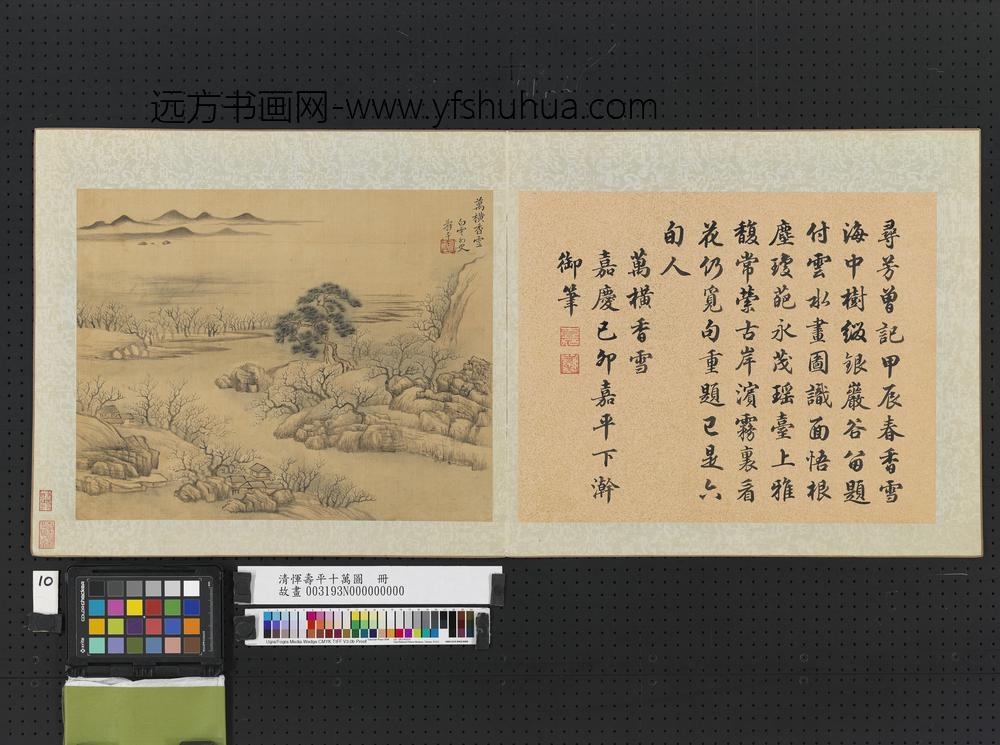 远方书画网-www.yfshuhua.com
尋芳曾記甲辰春香雪
海中樹綴銀巖谷留題
付雲水畫圖識面悟根
塵瓊葩永茂瑤臺上雅
馥常縈古岸濱霧裏看
花仍覓句重題已是六
旬人
萬橫香雪
嘉慶己卯嘉平下澣
御筆
萬橫香雪
白雲外史
壽平
10
colorchecker
x-rite
清惲壽平十萬圖 冊
故畫 003193N000000000
Ugra/Fogra Media Wedge CMYK TIFF V3.0b Proof